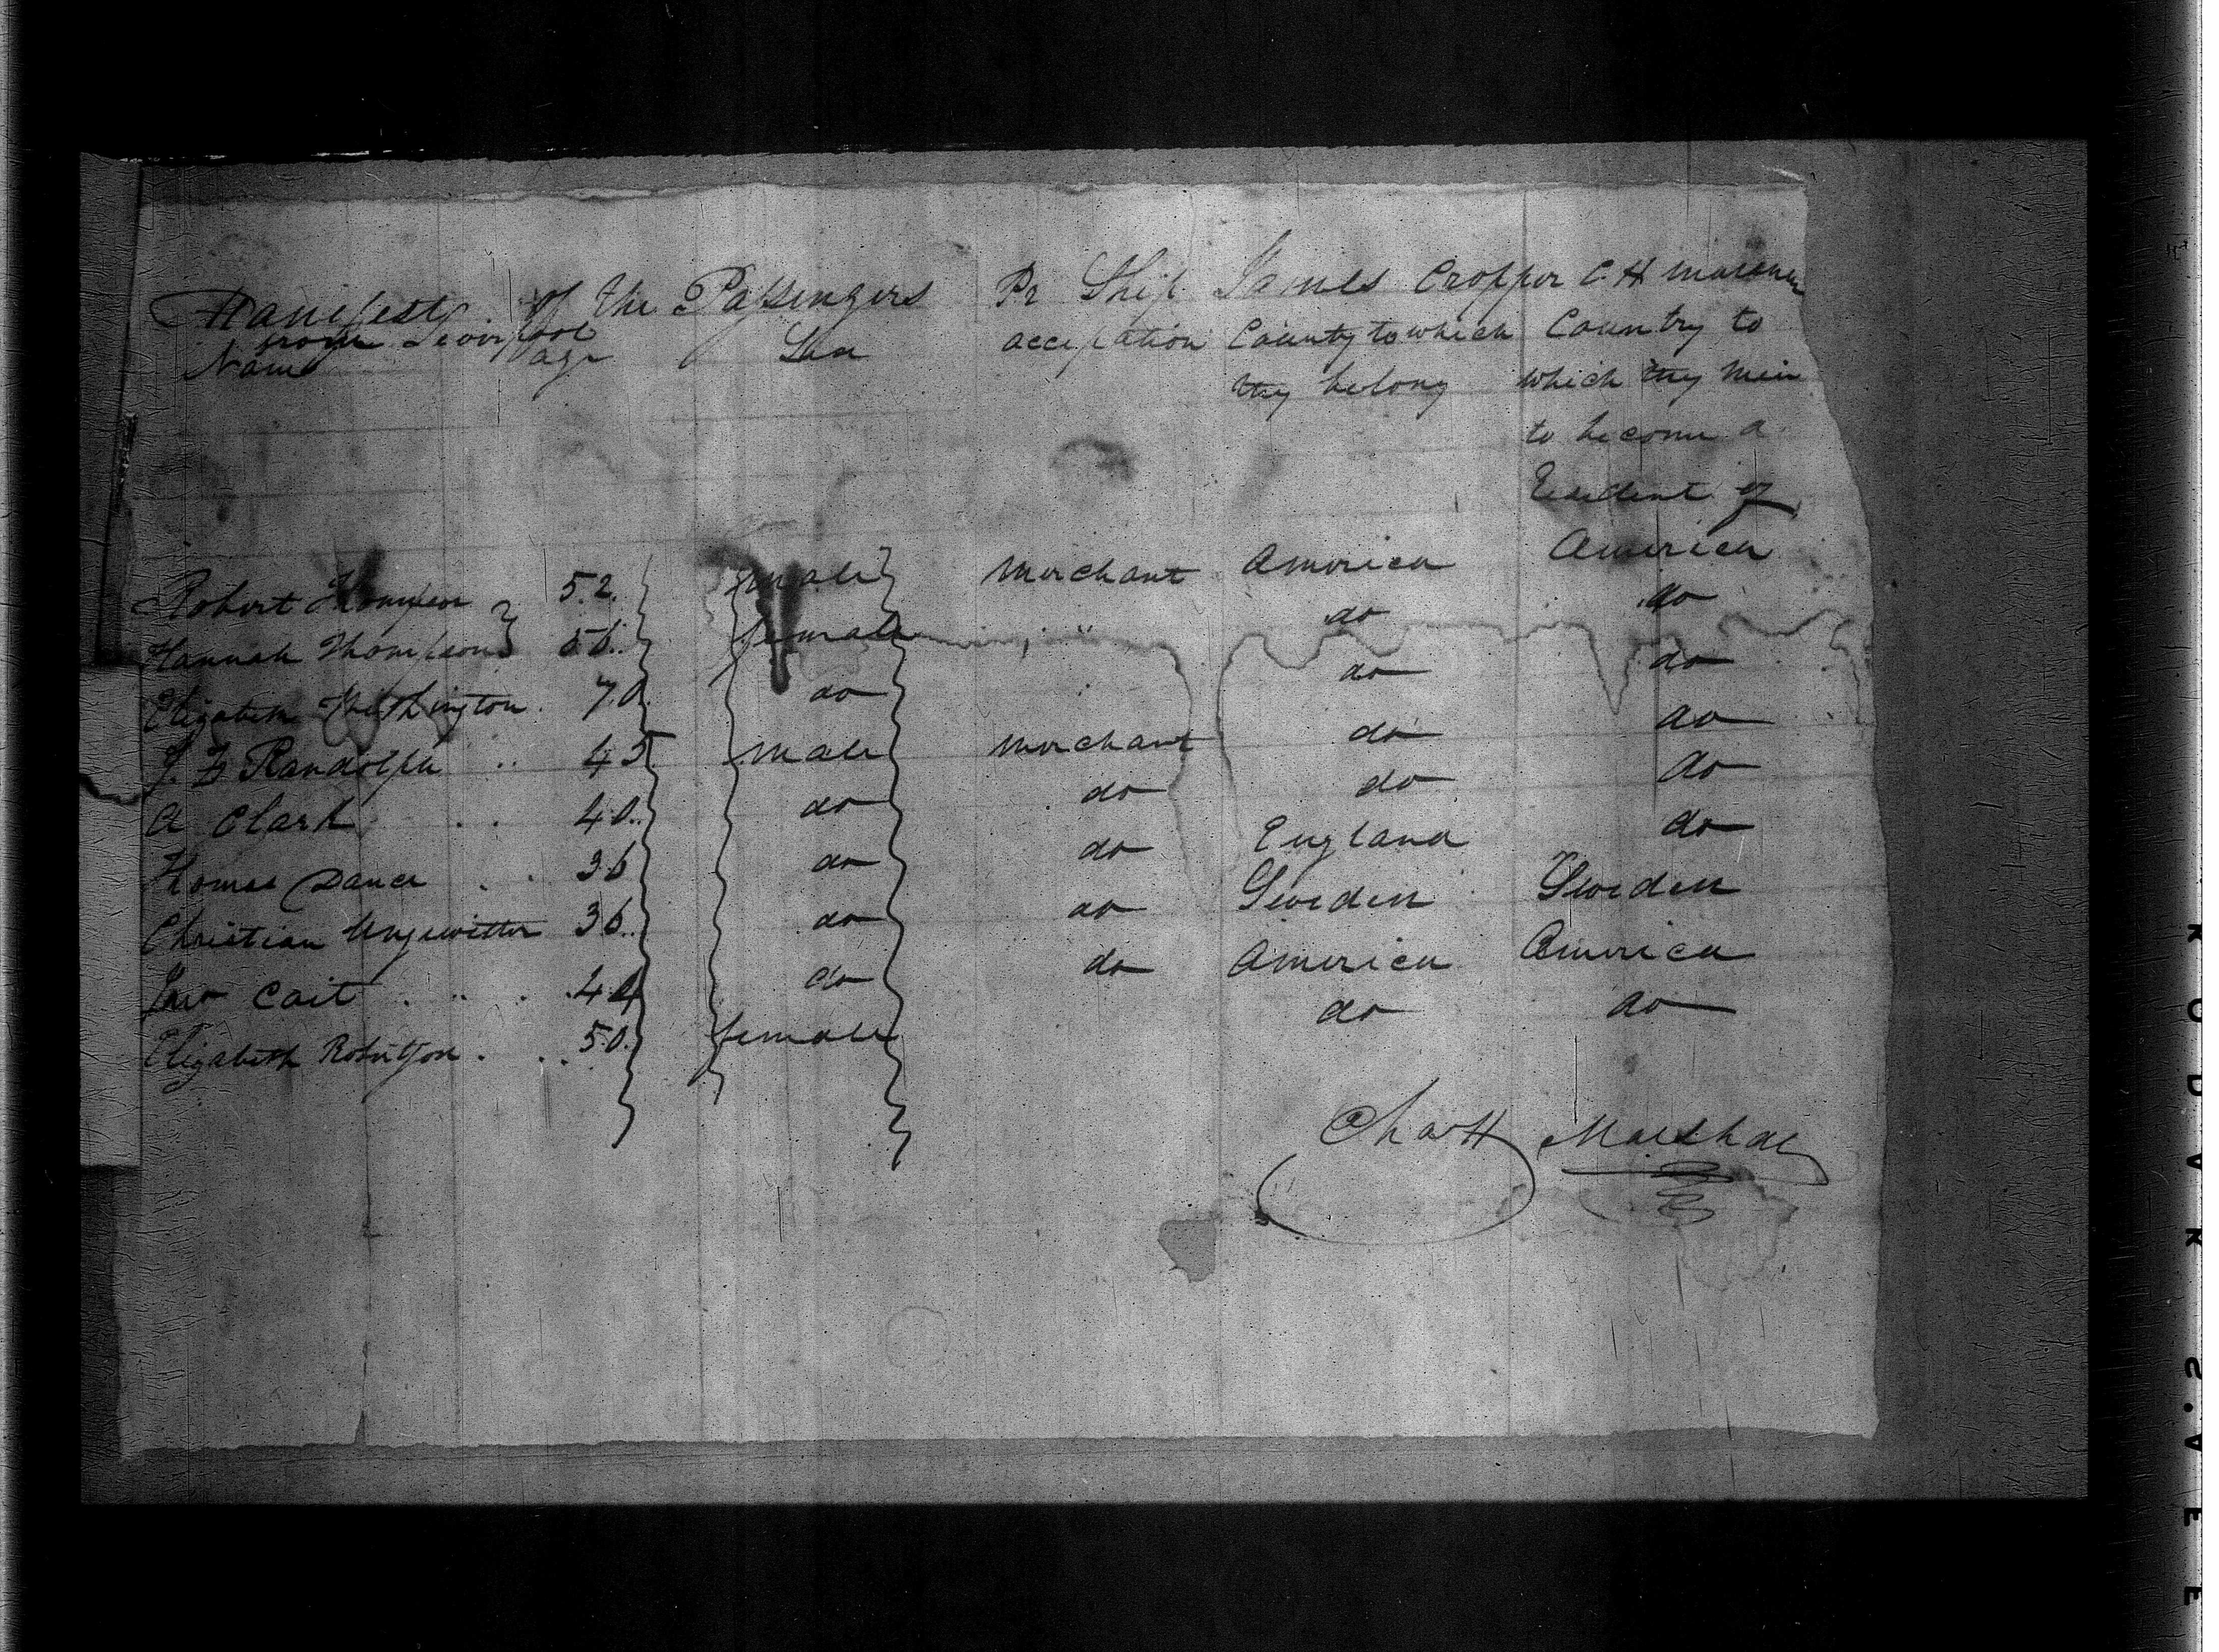 Manifest of the Passengers Pr Ship James Cropper C. H
from Liverpool
Name age Sex occupation County to which Country to
they belong which they
to become a
Resident of
Robert Thompson 52. male Merchant America America
Hannah Thompson } female " do do
Elizabeth 70 do do do
J. F Randolph .. 45 male Merchant do do
A Clark . . 40.. do do do do
Thomas Dance . . 36 do do England do
Christian Ungewitter 36.. do do Sweden Sweden
Jno Cait . .. . . 44 do do America America
Elizabeth Robertson . . . 50. female do do
Chas H Marshall
KODAK S.A.F.E